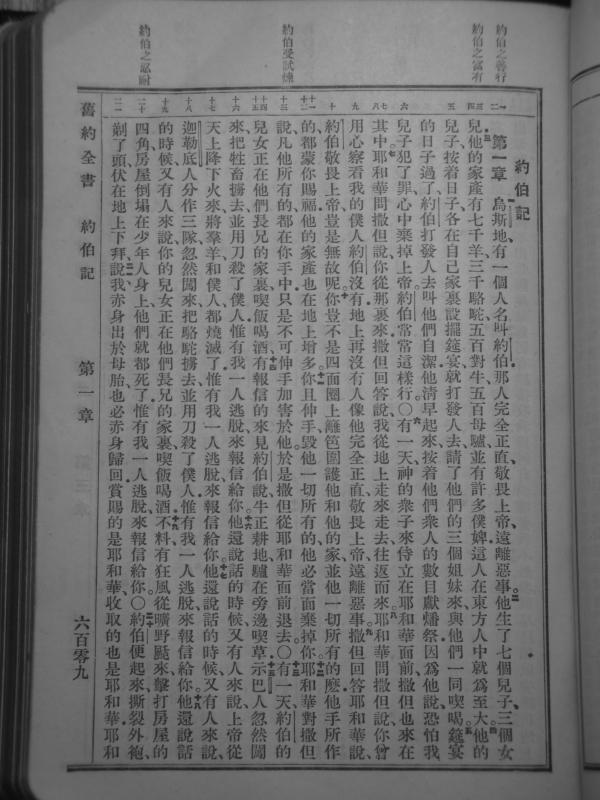 約伯之善行
約伯之富有
約伯受試煉
約伯之忍耐
約伯記
第一章 烏斯地有一個人名叫約伯那人完全正直敬畏上帝遠離惡事他生了七個兒子三個女
兒他的家產有七千羊三千駱駝五百對牛五百母驢並有許多僕婢這人在東方人中就爲至大他的
兒子按着日子各在自己家裏設擺筵宴就打發人去請了他們的三個姐妹來與他們一同喫喝筵宴
的日子過了約伯打發人去叫他們自潔他清早起來按着他們衆人的數目獻燔祭因爲他說恐怕我
兒子犯了罪心中棄掉上帝約伯常常這樣行〇有一天神的衆子來侍立在耶和華面前撒但也來在
其中耶和華問撒但說你從那裏來撒但回答說我從地上走來走去往返而來耶和華問撒但說你曾
用心察看我的僕人約伯沒有地上再沒有人像他完全正直敬畏上帝遠離惡事撒但回答耶和華說
約伯敬畏上帝豈是無故呢你豈不是四面圈上籬笆圍護他和他的家並他一切所有的麽他手所作
的都蒙你賜福他的家產也在地上增多你且伸手毀他一切所有的他必當面棄掉你耶和華對撒但
說凡他所有的都在你手中只是不可伸手加害於他於是撒但從耶和華面前退去〇有一天約伯的
兒女正在他們長兄的家裏喫飯喝酒有報信的來見約伯說牛正耕地驢在旁邊喫草示巴人忽然闖
來把牲畜擄去並用刀殺了僕人惟有我一人逃脫來報信給你他還說話的時候又有人來說上帝從
天上降下火來將羣羊和僕人都燒滅了惟有我一人逃脫來報信給你他還說話的時候又有人來說
迦勒底人分作三隊忽然闖來把駱駝擄去並用刀殺了僕人惟有我一人逃脫來報信給你他還說話
的時候又有人來說你的兒女正在他們長兄的家裏喫飯喝酒不料有狂風從曠野颳來擊打房屋的
四角房屋倒塌在少年人身上他們就都死了惟有我一人逃脫來報信給你〇約伯便起來撕裂外袍
剃了頭伏在地上下拜說我赤身出於母胎也必赤身歸回賞賜的是耶和華收取的也是耶和華耶和
舊約全書 約伯記 第一章 六百零九